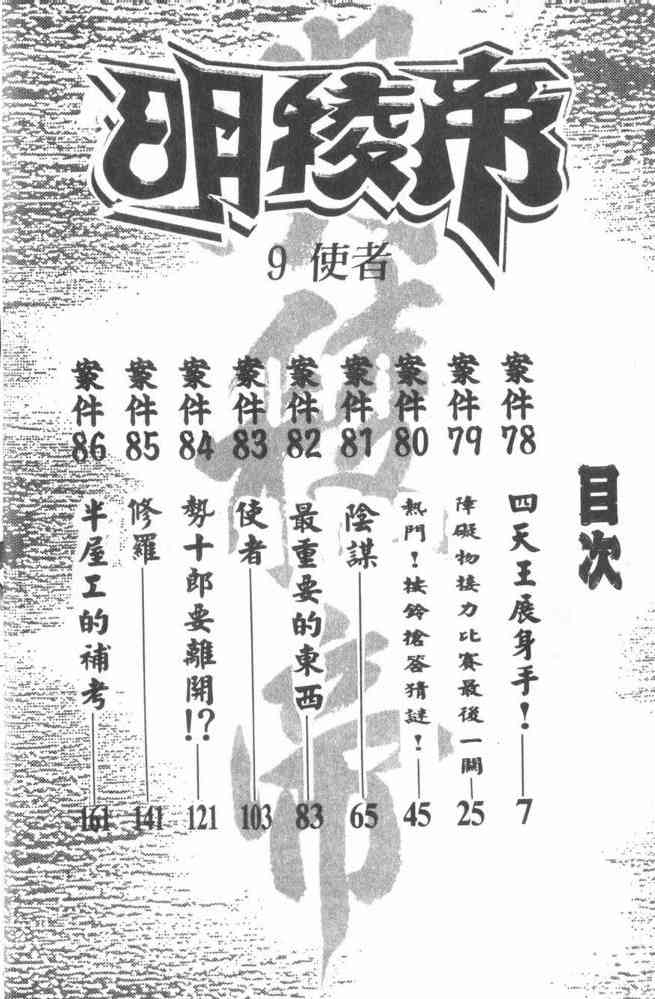 明稜帝
9 使者
目次
案件78 四天王展身手! 7
案件79 障礙物接力比賽最後一關 25
案件80 熱門!按鈴搶答猜謎! 45
案件81 陰謀 65
案件82 最重要的東西 83
案件83 使者 103
案件84 勢十郎要離開!? 121
案件85 修羅 141
案件86 半屋工的補考 161